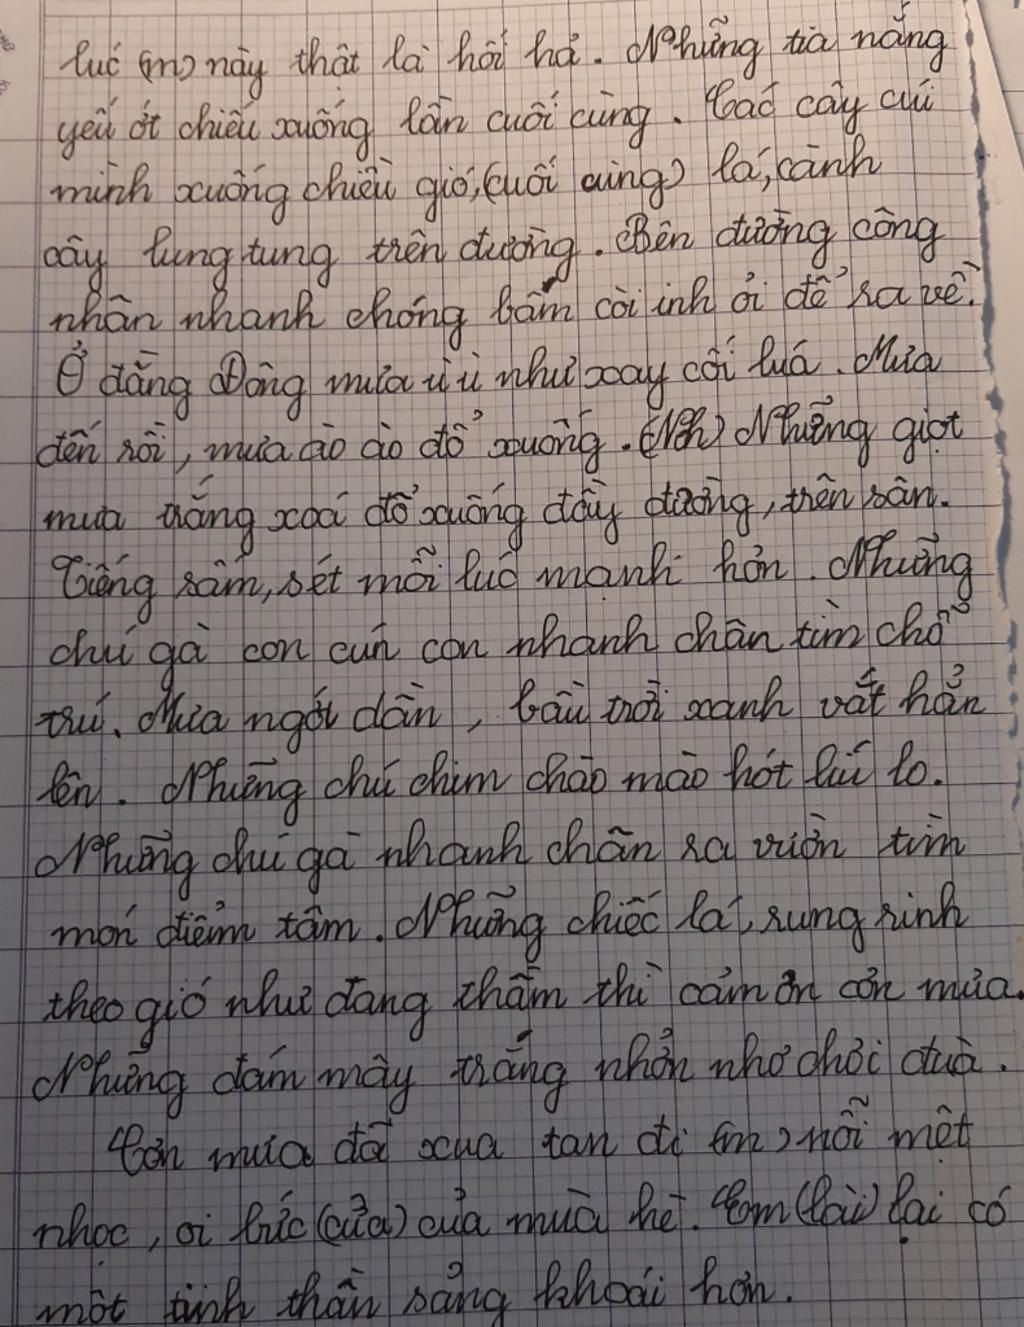 lúc (m) này thật là hối hả. Những tia nắng
yếu ớt chiếu xuống lần cuối cùng. Các cây cúi
mình xuống chiều gió, (cuối cùng) lá, cành
cây lung tung trên đường. Bên đường công
nhân nhanh chóng bấm còi inh ỏi để ra về.
Ở đằng Đông mưa ù ù như xay cối lúa. Mưa
đến rồi, mưa ào ào đổ xuống. (Nh) Những giọt
mưa trắng xoá đổ xuống đầy đường, trên sân.
Tiếng sấm, sét mỗi lúc mạnh hơn. Những
chú gà con cún con nhanh chân tìm chỗ
trú. Mưa ngớt dần, bầu trời xanh vắt hẳn
lên. Những chú chim chào mào hót líu lo.
Những chú gà nhanh chân ra vườn tìm
món điểm tâm. Những chiếc lá, rung rinh
theo gió như đang thầm thì cảm ơn cơn mưa.
Những đám mây trắng nhởn nhơ chơi đùa.
Cơn mưa đã xua tan đi (m) nỗi mệt
nhọc, oi bức (cửa) của mùa hè. Em (lài) lại có
một tinh thần sảng khoái hơn.